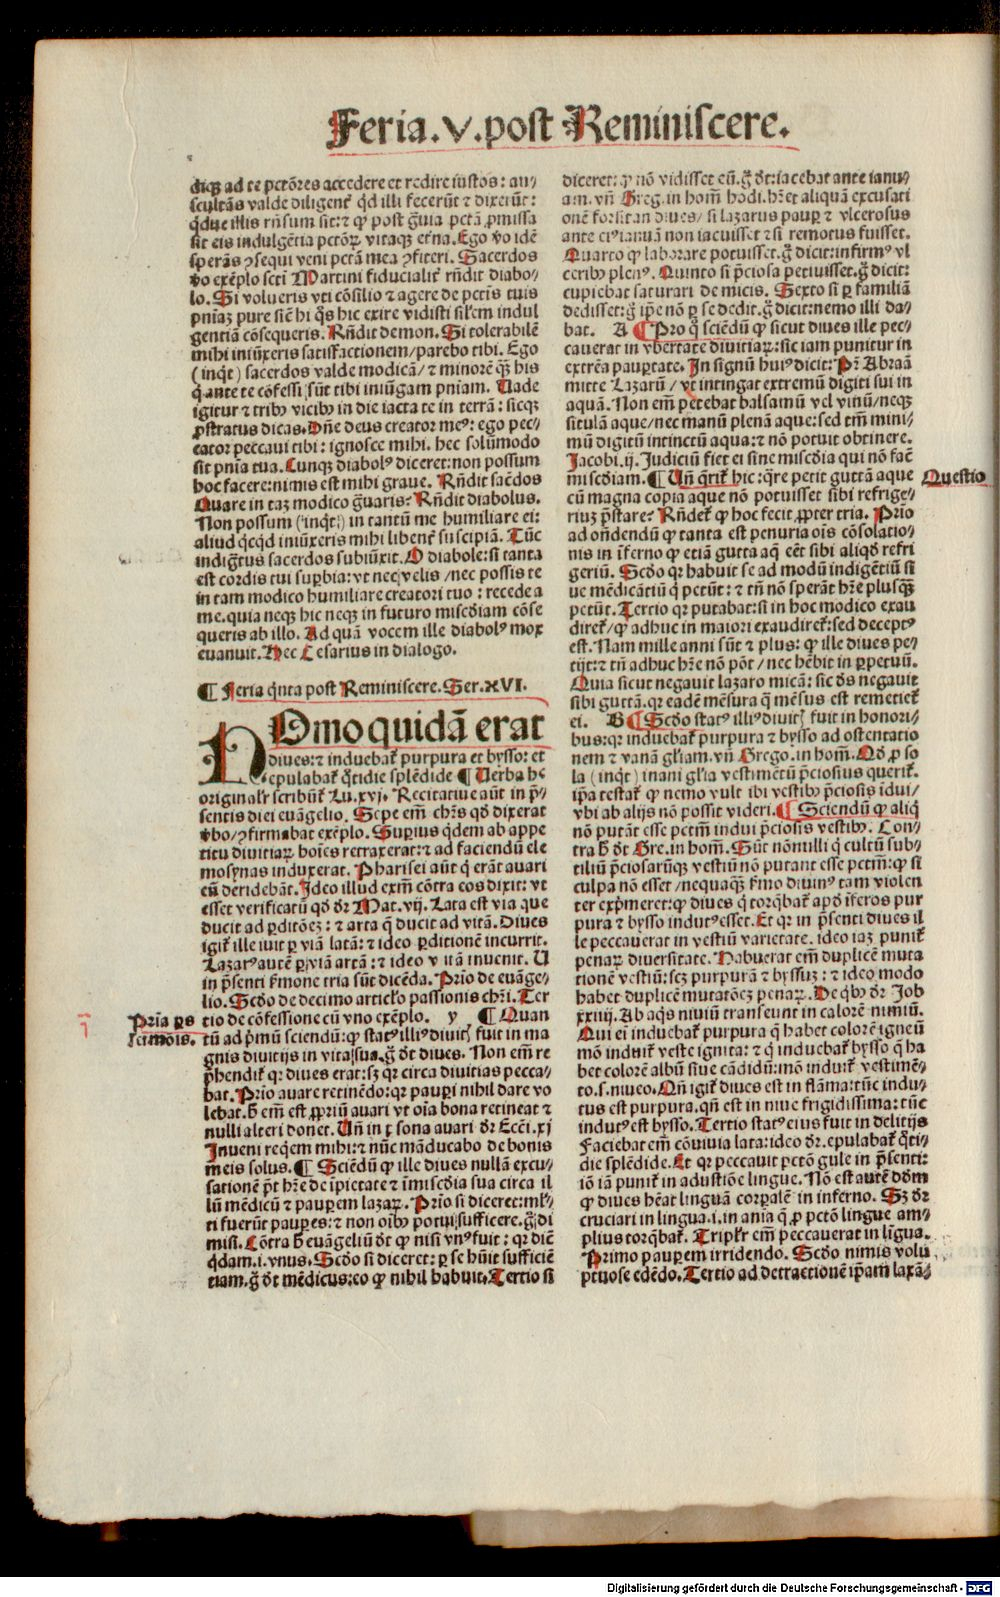 Feria.V.post Reminiscere.
diqꝫ ad te pctõres accedere et redire iustos: au⸗
scultãs valde diligenẽ qd illi fecerũt ⁊ dixerũt:
q̃due illis rñsum sit:⁊ ꝙ post g̃uia pctã ꝓmissa
sit eis indulgẽtia pctõꝝ vitaqꝫ et̃na. Ego ṽo idẽ
sperãs ꝯsequi veni pctã mea ꝯfiteri. Sacerdos
ṽo exẽplo scti Martini fiducialit̃ rñdit diabo⸗
lo. Si volueris vti cõsilio ⁊ agere de pctis tuis
pniaꝫ pure siẽ hi q̃s hic exire vidisti sil̃em indul
gentiã cõsequeris. Rñdit demon. Si tolerabilẽ
mihi iniũxeris satisfactionem/parebo tibi. Ego
(inq̃t) sacerdos valde modicã/ ⁊ minorẽ q̃ꝫ his
q̃ ante te cõfessi sũt tibi iniũgam pniam. Uade
igitur ⁊ tribꝰ vicibꝰ in die iacta te in terrã: sicqꝫ
ꝓstratus dicas. Dñe deus creator meꝰ: ego pec⸗
cator peccaui tibi: ignosce mihi. hec solũmodo
sit pnia tua. Cunqꝫ diabolꝰ diceret: non possum
hoc facere: nimis est mihi graue. Rñdit saẽdos
Quare in taꝫ modico g̃uaris? Rñdit diabolus.
Non possum (inq̃t) in tantũ me humiliare ei:
aliud qcqd iniũxeris mihi libenẽ suscipiã. Tũc
indig̃tus sacerdos subiũxit. O diabole: si tanta
est cordis tui suꝑbia: vt nec velis /nec possis te
in tam modico humiliare creatori tuo: recede a
me. quia neqꝫ hic neqꝫ in futuro miscdiam cõse
queris ab illo. Ad quã vocem ille diabolꝰ mox
euanuit. Hec Cesarius in dialogo.
¶ Feria q̃nta post Reminiscere. Ser. XVI.
HOmo quidã erat
diues: ⁊ induebaẽ purpura et bysso: et
epulabaẽ q̃tidie splẽdide ¶ Uerba hec
originalr̃ scribũẽ Lu. xvj. Recitatiue aũt in p̃⸗
sentis diei euãgelio. Sepe em̃ chr̃s qd̃ dixerat
ṽbo/ꝯfirmabat exẽplo. Suꝑius q̃dem ab appe
titu diuitiaꝝ hoies retraxerat: ⁊ ad faciendũ ele
mosynas induxerat. Pharisei aũt q̃ erãt auari
eũ deridebãt. Ideo illud exm̃ cõtra eos dixit: vt
esset verificatũ qd̃ dr̃ Mat. vij. Lata est via que
ducit ad ꝑditõeꝫ: ⁊ arta q̃ ducit ad vitã. Diues
igiẽ ille iuit ꝑ viã latã: ⁊ ideo ꝑditionẽ incurrit.
Lazarꝰ autẽ ꝑ viã artã: ⁊ ideo vitã inuenit. U
in p̃senti ẽmone tria sũt dicẽda. Prio de euãge⸗
lio. Scdo de decimo articlo passionis chri. Ter
tio de cõfessione cũ vno exẽplo. y ¶ Quan
Pria ꝑs
sermõis.
tũ ad p̃mũ sciendũ: ꝙ statꝰ illiꝰ diuitꝭ fuit in ma
gnis diuitijs in vita sua. g̃ dt diues. Non em̃ re
p̃hendiẽ qꝛ diues erat: sꝫ qꝛ circa diuitias pecca⸗
bat. Prio auare retinẽdo: qꝛ pauꝑi nihil dare vo
lebat. ħ em̃ est ꝓpriũ auari vt oĩa bona retineat ⁊
nulli alteri donet. Uñ in ꝑsona auari dr̃ Eccl̃i. xj
Inueni req̃em mihi: ⁊ nũc mãducabo de bonis
meis solus. ¶ Sciẽdũ ꝙ ille diues nullã excu⸗
sationẽ p̃t hr̃e de ĩpietate ⁊ ĩmiscdia sua circa il
lũ mẽdicũ ⁊ pauꝑem lazaꝝ. Prio si diceret: ml̃⸗
ti fuerũt pauꝑes: ⁊ non oĩbꝰ potui sufficere. g̃ di
misi. Cõtra ħ euãgeliũ dt ꝙ nisi vnꝰ fuit: qꝛ diẽ
q̃dam. i. vnus. Scdo si diceret: ꝑ se hũit sufficiẽ
tiam. g̃ dt mẽdicus: eo ꝙ nihil habuit. Tertio si
diceret: ꝙ nõ vidisset eũ. g̃ dt: iacebat ante ianu⸗
am. vñ Greg. in hom̃ hodi. hr̃et aliquã excusati
onẽ forsitan diues/ si lazarus pauꝑ ⁊ vlcerosus
ante eiꝰ ianuã non iacuisset ⁊ si remotus fuisset.
Quarto ꝙ laborare potuisset. g̃ dicit: infirmꝰ vl
ceribꝰ plenꝰ. Quinto si p̃ciosa petiuisset. g̃ dicit:
cupiebat saturari de micis. Sexto si ꝑ familiã
dedisset: g̃ ip̃e nõ ꝑ se dedit. g̃ dicit: nemo illi da⸗
bat. A ¶ Pro q̃ sciẽdũ ꝙ sicut diues ille pec⸗
cauerat in vbertate diuitiaꝝ: sic iam punitur in
extrẽa pauꝑtate. In signũ huiꝰ dicit: Pr̃ Abraã
mitte Lazarũ/ vt intingat extremũ digiti sui in
aquã. Non em̃ petebat balsamũ vel vinũ/neqꝫ
situlã aque/nec manũ plenã aque: sed tm̃ mini⸗
mũ digitũ intinctũ aqua: ⁊ nõ potuit obtinere.
Jacobi. ij. Judiciũ fiet ei sine miscdia qui nõ facẽ
miscdiam. ¶ Uñ q̃riẽ hic: q̃re petit guttã aque
Questio
cũ magna copia aque nõ potuisset sibi refrige⸗
riuꝫ p̃stare? Rñdeẽ ꝙ hoc fecit ꝓpter tria. Prio
ad oñdendũ ꝙ tanta est penuria oĩs cõsolatio⸗
nis in ĩferno ꝙ etiã gutta aq̃ eẽt sibi aliqd̃ refri
geriũ. Scdo qꝛ habuit se ad modũ indigẽtiũ si
ue mẽdicãtiũ q̃ petũt: ⁊ tñ nõ sperãt hr̃e plusq̃ꝫ
petũt. Tertio qꝛ putabat: si in hoc modico exau
direẽ/ꝙ adhuc in maiori exaudireẽ: sed deceptꝰ
est. Nam mille anni sũt ⁊ plus: ꝙ ille diues pe⸗
tijt: ⁊ tñ adhuc hr̃e nõ põt/ nec hẽbit in ꝑpetuũ.
Quia sicut negauit lazaro micã: sic dꝰ negauit
sibi guttã. qꝛ eadẽ mẽsura q̃ mẽsus est remetieẽ
ei. B ¶ Scdo statꝰ illiꝰ diuitꝭ fuit in honori⸗
bus: qꝛ induebaẽ purpura ⁊ bysso ad ostentatio
nem ⁊ vanã gl̃iam. vñ Grego. in hom̃. Qd ꝓ so
la (inq̃t) inani gl̃ia vestimẽtũ p̃ciosius queriẽ.
ip̃a testaẽ ꝙ nemo vult ibi vestibꝰ p̃ciosis ĩdui/
vbi ab alijs nõ possit videri. ¶ Sciendũ ꝙ aliq̃
nõ putãt esse pctm̃ indui p̃ciosis vestibꝰ. Con⸗
tra ħ dt Gre. in hom̃. Sũt nõnulli q̃ cultũ sub⸗
tiliũ p̃ciosarũqꝫ vestiũ nõ putant esse pctm̃: ꝙ si
culpa nõ esset /nequaq̃ꝫ ẽmo diuinꝰ tam violen
ter exp̃meret: ꝙ diues q̃ torq̃baẽ apd̃ ĩferos pur
pura ⁊ bysso indutꝰ esset. Et qꝛ in p̃senti diues il
le peccauerat in vestiũ varietate. ideo iaꝫ puniẽ
penaꝝ diuersitate. Habuerat em̃ duplicẽ muta
tionẽ vestiũ: scꝫ purpurã ⁊ byssuꝫ: ⁊ ideo modo
habet duplicẽ mutatõeꝫ penaꝝ. De q̃bꝰ dr̃ Job
xxiiij. Ab aq̃s niuiũ transeunt in calorẽ nimiũ.
Qui eĩ induebaẽ purpura q̃ habet colorẽ igneũ
mõ induiẽ veste ignita: ⁊ q̃ induebaẽ bysso q̃ ha
bet colorẽ albũ siue cãdidũ: mõ induiẽ vestimẽ⸗
to. s. niueo. Qñ igiẽ diues est in flãma: tũc indu⸗
tus est purpura. qñ est in niue frigidissima: tũc
indutꝰ est bysso. Tertio statꝰ eius fuit in delitijs
Faciebat em̃ cõuiuia lata: ideo dr̃. epulabaẽ q̃ti⸗
die splẽdide. Et qꝛ peccauit pctõ gule in p̃senti:
iõ iã puniẽ in adustiõe lingue. Nõ est autẽ dõm
ꝙ diues hẽat linguã corꝑalẽ in inferno. Sꝫ dr̃
cruciari in lingua. i. in anĩa q̃ ꝓ pctõ lingue am⸗
plius torq̃baẽ. Triplr̃ em̃ peccauerat in lĩgua.
Primo pauꝑem irridendo. Scdo nimis volu
ptuose edẽdo. Tertio ad detractionẽ ip̃am laxã⸗
Digitalisierung gefördert durch die Deutsche Forschungsgemeinschaft - DFG